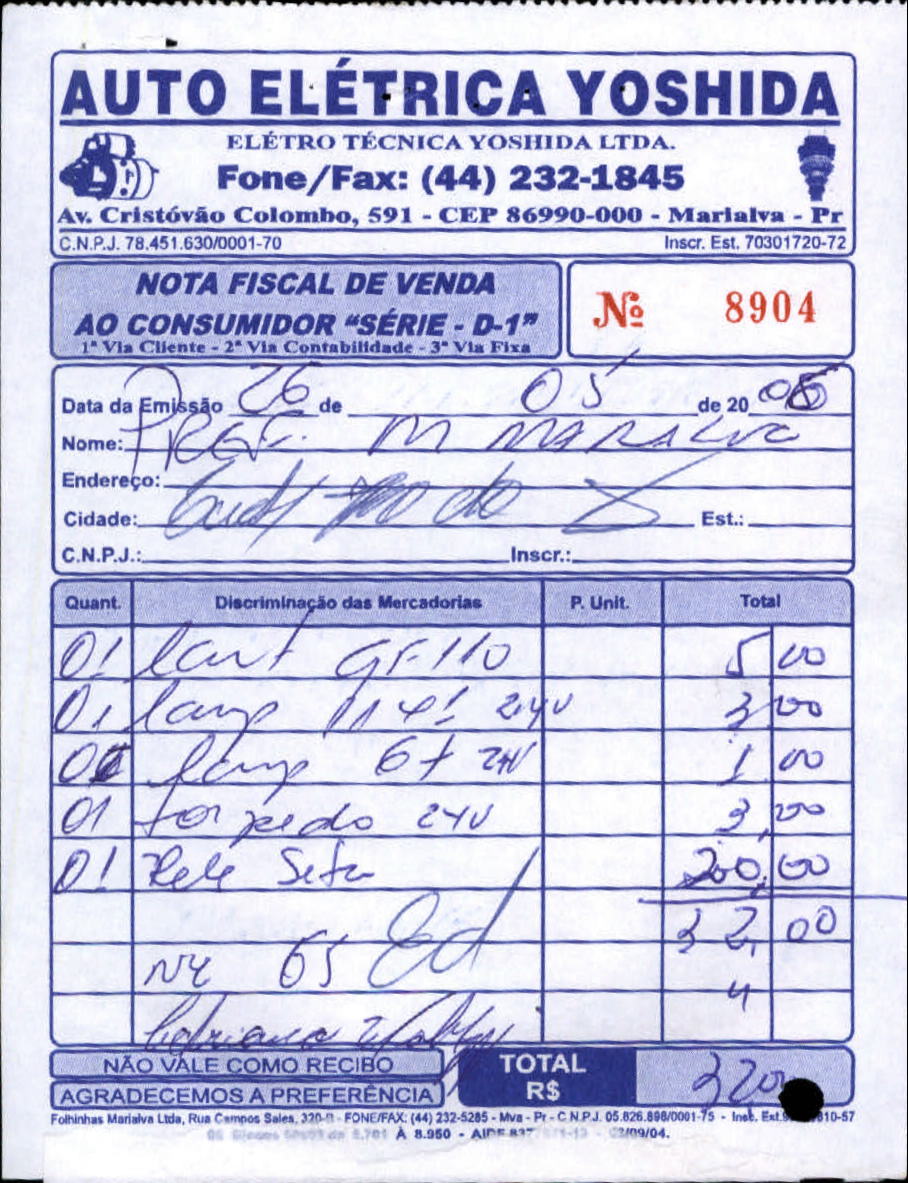 AUTO ELÉTRICA YOSHIDA
ELÉTRO TÉCNICA YOSHIDA LTDA.
Fone/Fax: (44) 232-1845
Av. Cristóvão Colombo, 591 - CEP 86990-000 - Marialva - Pr
C.N.P.J. 78.451.630/0001-70 Inscr. Est. 70301720-72
NOTA FISCAL DE VENDA
AO CONSUMIDOR “SÉRIE - D-1”
1ª Via Cliente - 2ª Via Contabilidade - 3ª Via Fixa
Nº 8904
Data da Emissão 26 de 05 de 20
Nome: PREF. M
Endereço:
Cidade: Est.:
C.N.P.J.: Inscr.:
Quant. Discriminação das Mercadorias P. Unit. Total
01 GF 110 5 00
01 lamp 24V 3 00
lamp 67 24V 1 00
01 torpedo 24V 3,00
01 Rele Seta 00
32,00
65
NÃO VALE COMO RECIBO
AGRADECEMOS A PREFERÊNCIA
TOTAL
R$ 3200
Folhinhas Marialva Ltda, Rua Campos Sales, - FONE/FAX: (44) 232-5285 - Mva - Pr - C.N.P.J. 05.826.898/0001-75 - Inst. Est.
À 8.950 - AIDF /09/04.